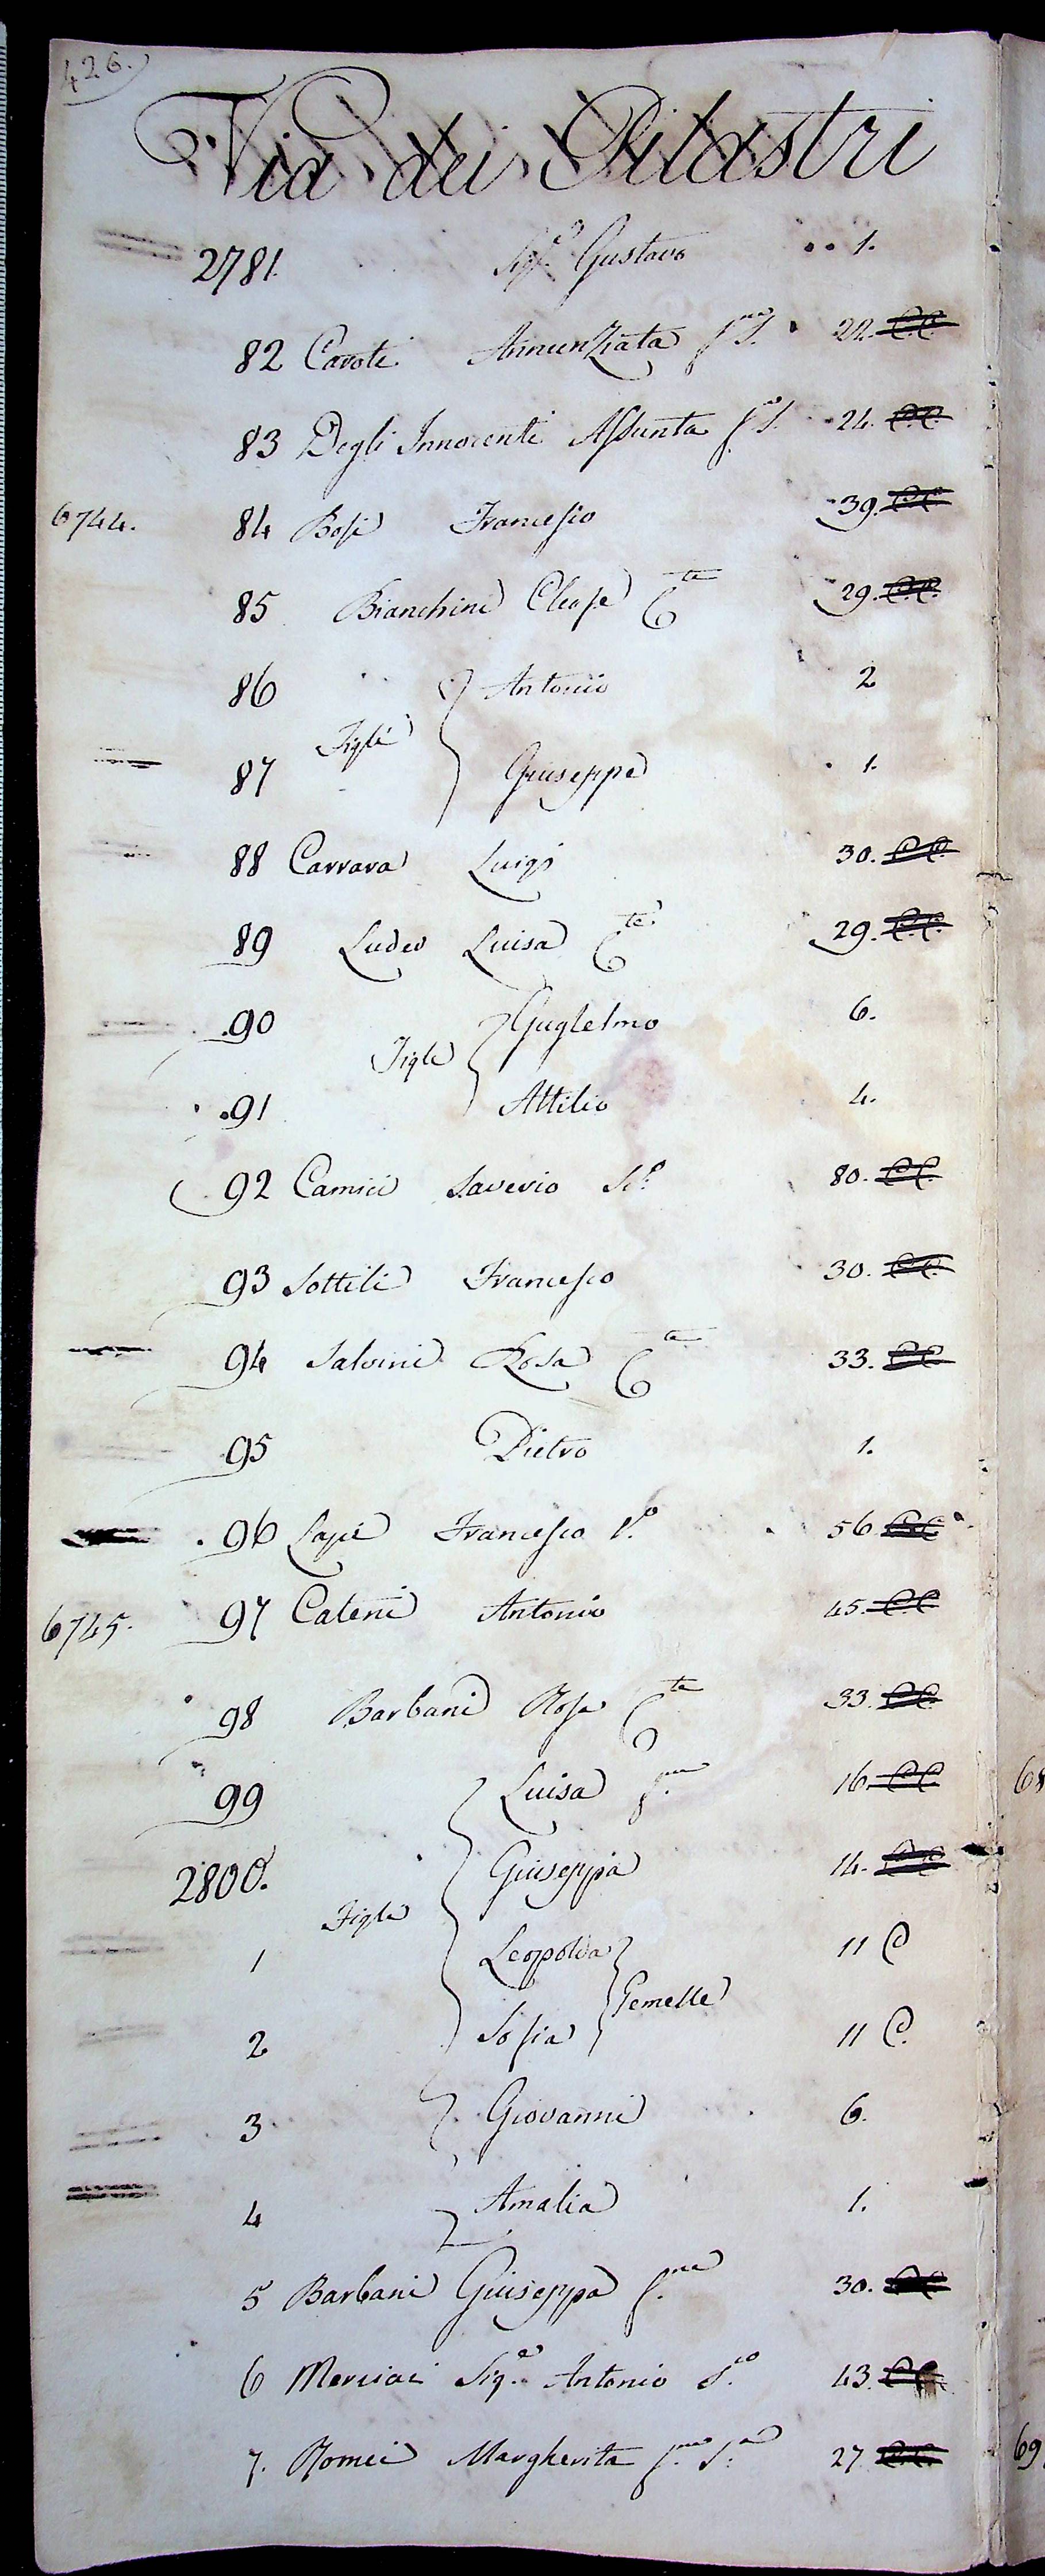 426.
Via dei Pilastri
2781. Sigʳᵉ Gustavo 1.
82 Cavoti Annunziata fᵐᵃ S. 22. C.C.
83 Degli Innocenti Assunta fᵃ S. 24. C.C.
6744. 84 Bosi Francesco 39. C.C.
85 Bianchini Cleofe Cᵗᵃ 29. C.C.
86 Antonio 2
Figli
87 Giuseppe 1.
88 Carrara Luigi 30. C.C.
89 Luder Luisa Cᵗᵃ 29. C.C.
90 Guglelmo 6.
Figli
91 Attilio 4.
92 Camici Saverio Sᵒ 80. C.C.
93 Sottili Francesco 30. C.C.
94 Salvini Rosa Cᵗᵃ 33. C.C.
95 Pietro 1.
96 Lapi Francesco Vᵒ 56 C.C.
6745. 97 Cateni Antonio 45. C.C.
98 Barbani Rosa Cᵗᵃ 33. C.C.
99 Luisa fᵐᵃ 16. C.C.
2800. Giuseppa 14. C.C.
Figli
1 Leopolda 11 C
Gemelle
2 Sofia 11 C.
3 Giovanni 6.
4 Amalia 1.
5 Barbani Giuseppa fᵐᵃ 30. C.C.
6 Merciai Sigᵉ Antonio Sᵒ 43. C.C.
7. Romei Margherita fᵐᵃ Sᵃ 27 C.C.